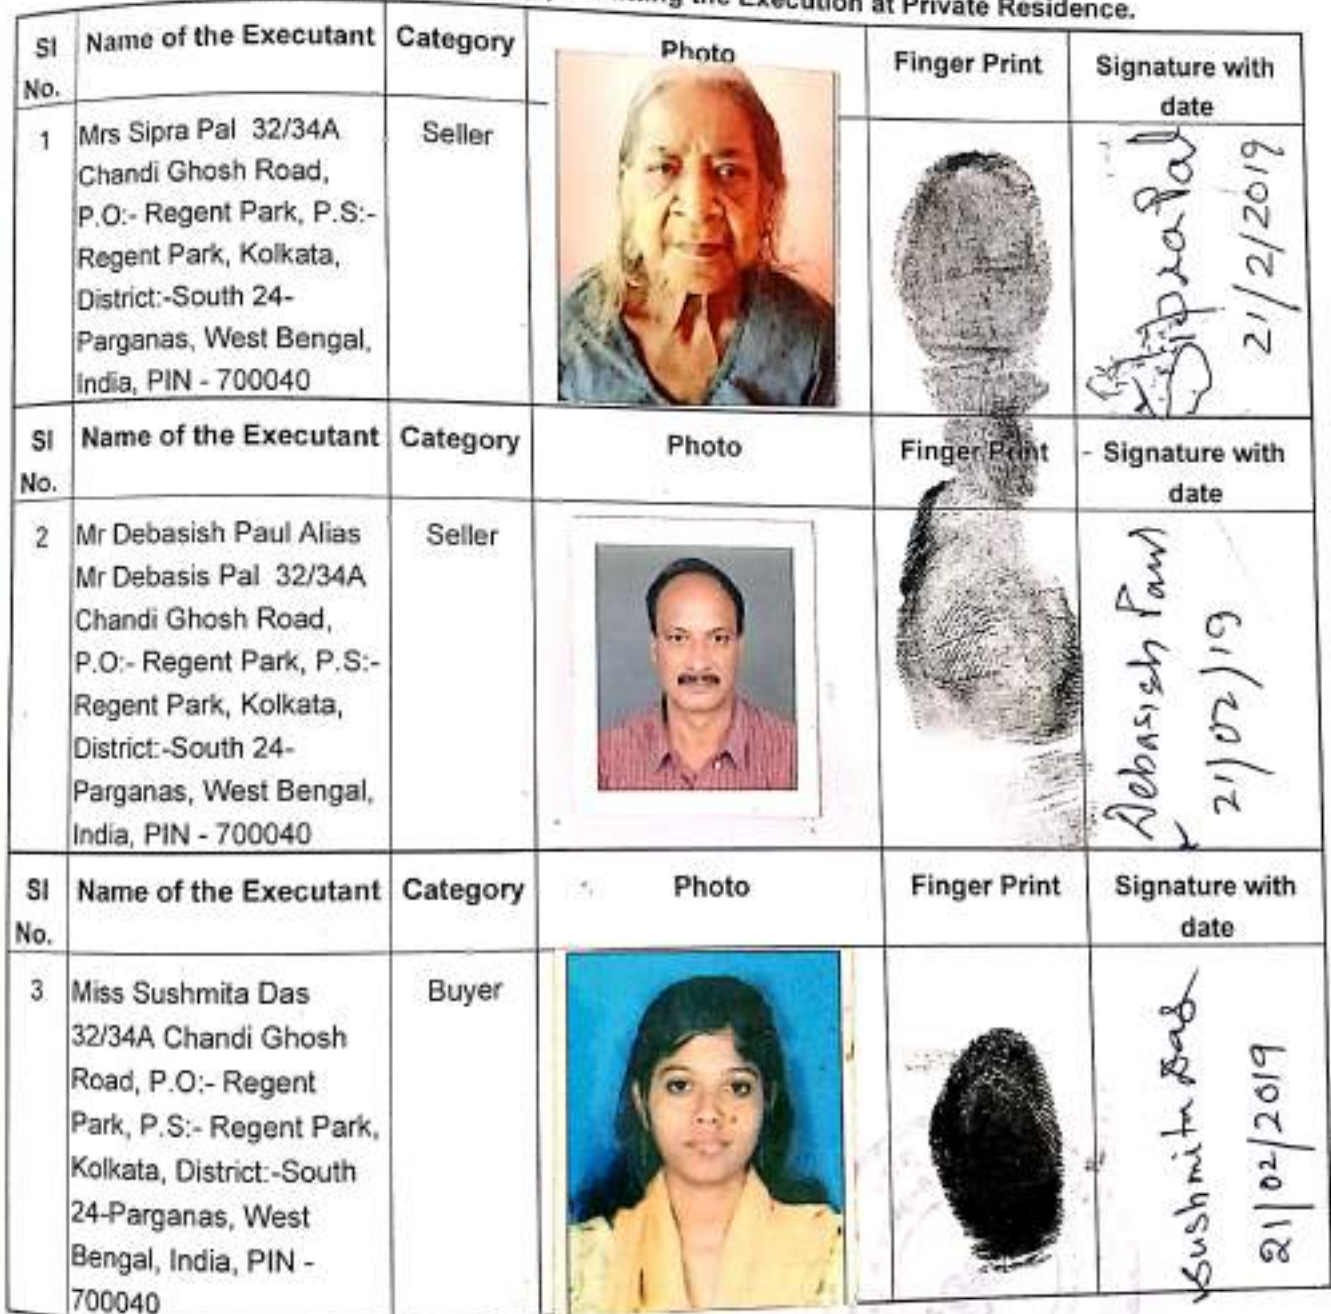 the Execution at Private Residence.
Sl No. Name of the Executant Category Photo Finger Print Signature with date
1 Mrs Sipra Pal 32/34A Seller
Chandi Ghosh Road,
P.O:- Regent Park, P.S:-
Regent Park, Kolkata,
District:-South 24-
Parganas, West Bengal,
India, PIN - 700040
Sipra Pal
21/2/2019
Sl No. Name of the Executant Category Photo Finger Print - Signature with date
2 Mr Debasish Paul Alias Seller
Mr Debasis Pal 32/34A
Chandi Ghosh Road,
P.O:- Regent Park, P.S:-
Regent Park, Kolkata,
District:-South 24-
Parganas, West Bengal,
India, PIN - 700040
Debasish Paul
21/02/19
Sl No. Name of the Executant Category Photo Finger Print Signature with date
3 Miss Sushmita Das Buyer
32/34A Chandi Ghosh
Road, P.O:- Regent
Park, P.S:- Regent Park,
Kolkata, District:-South
24-Parganas, West
Bengal, India, PIN -
700040
Sushmita Das
21/02/2019